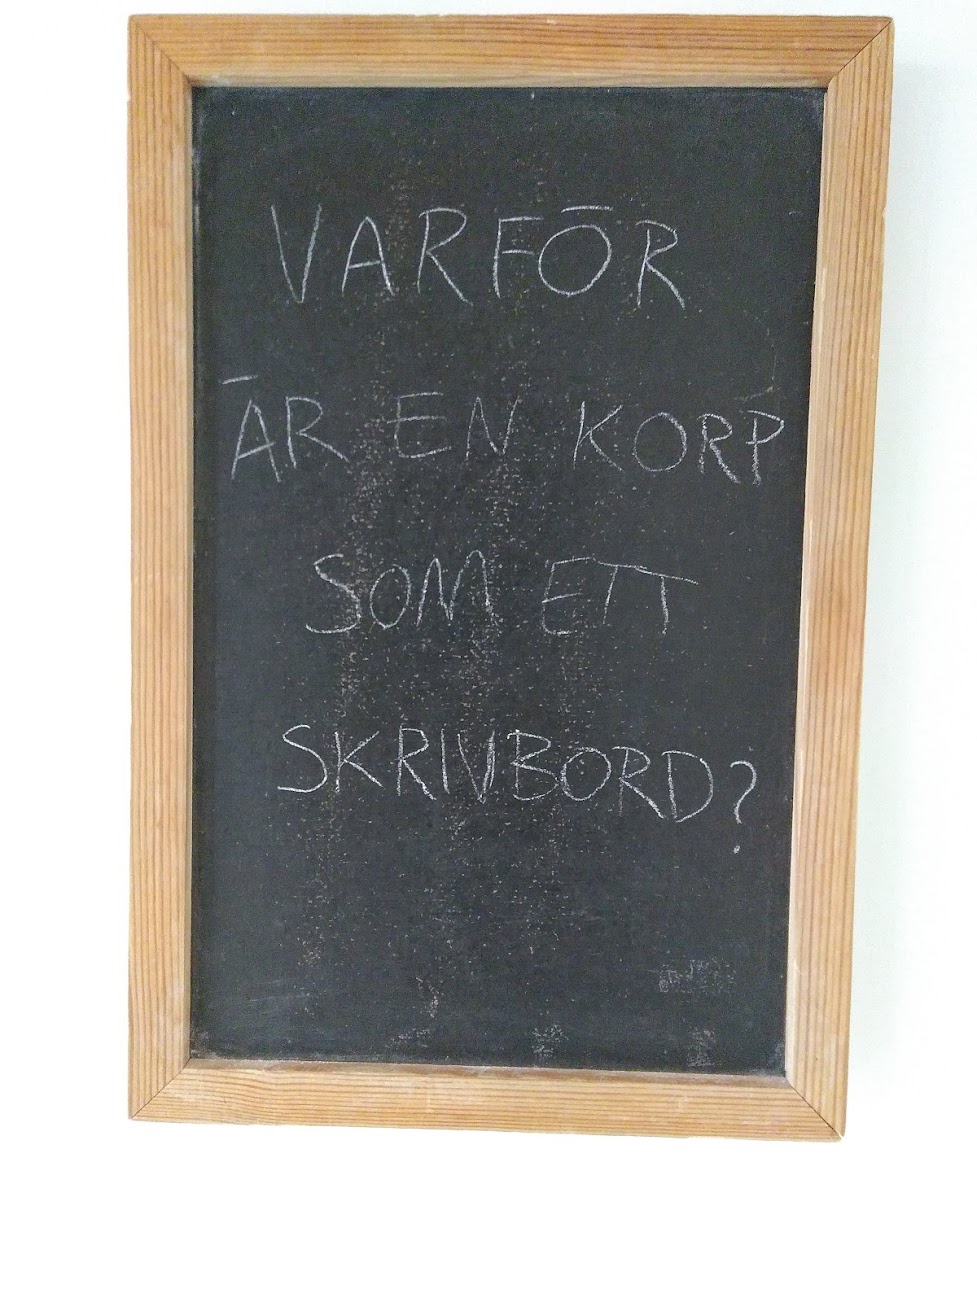 VARFÖR
ÄR EN KORP
SOM ETT
SKRIVBORD?